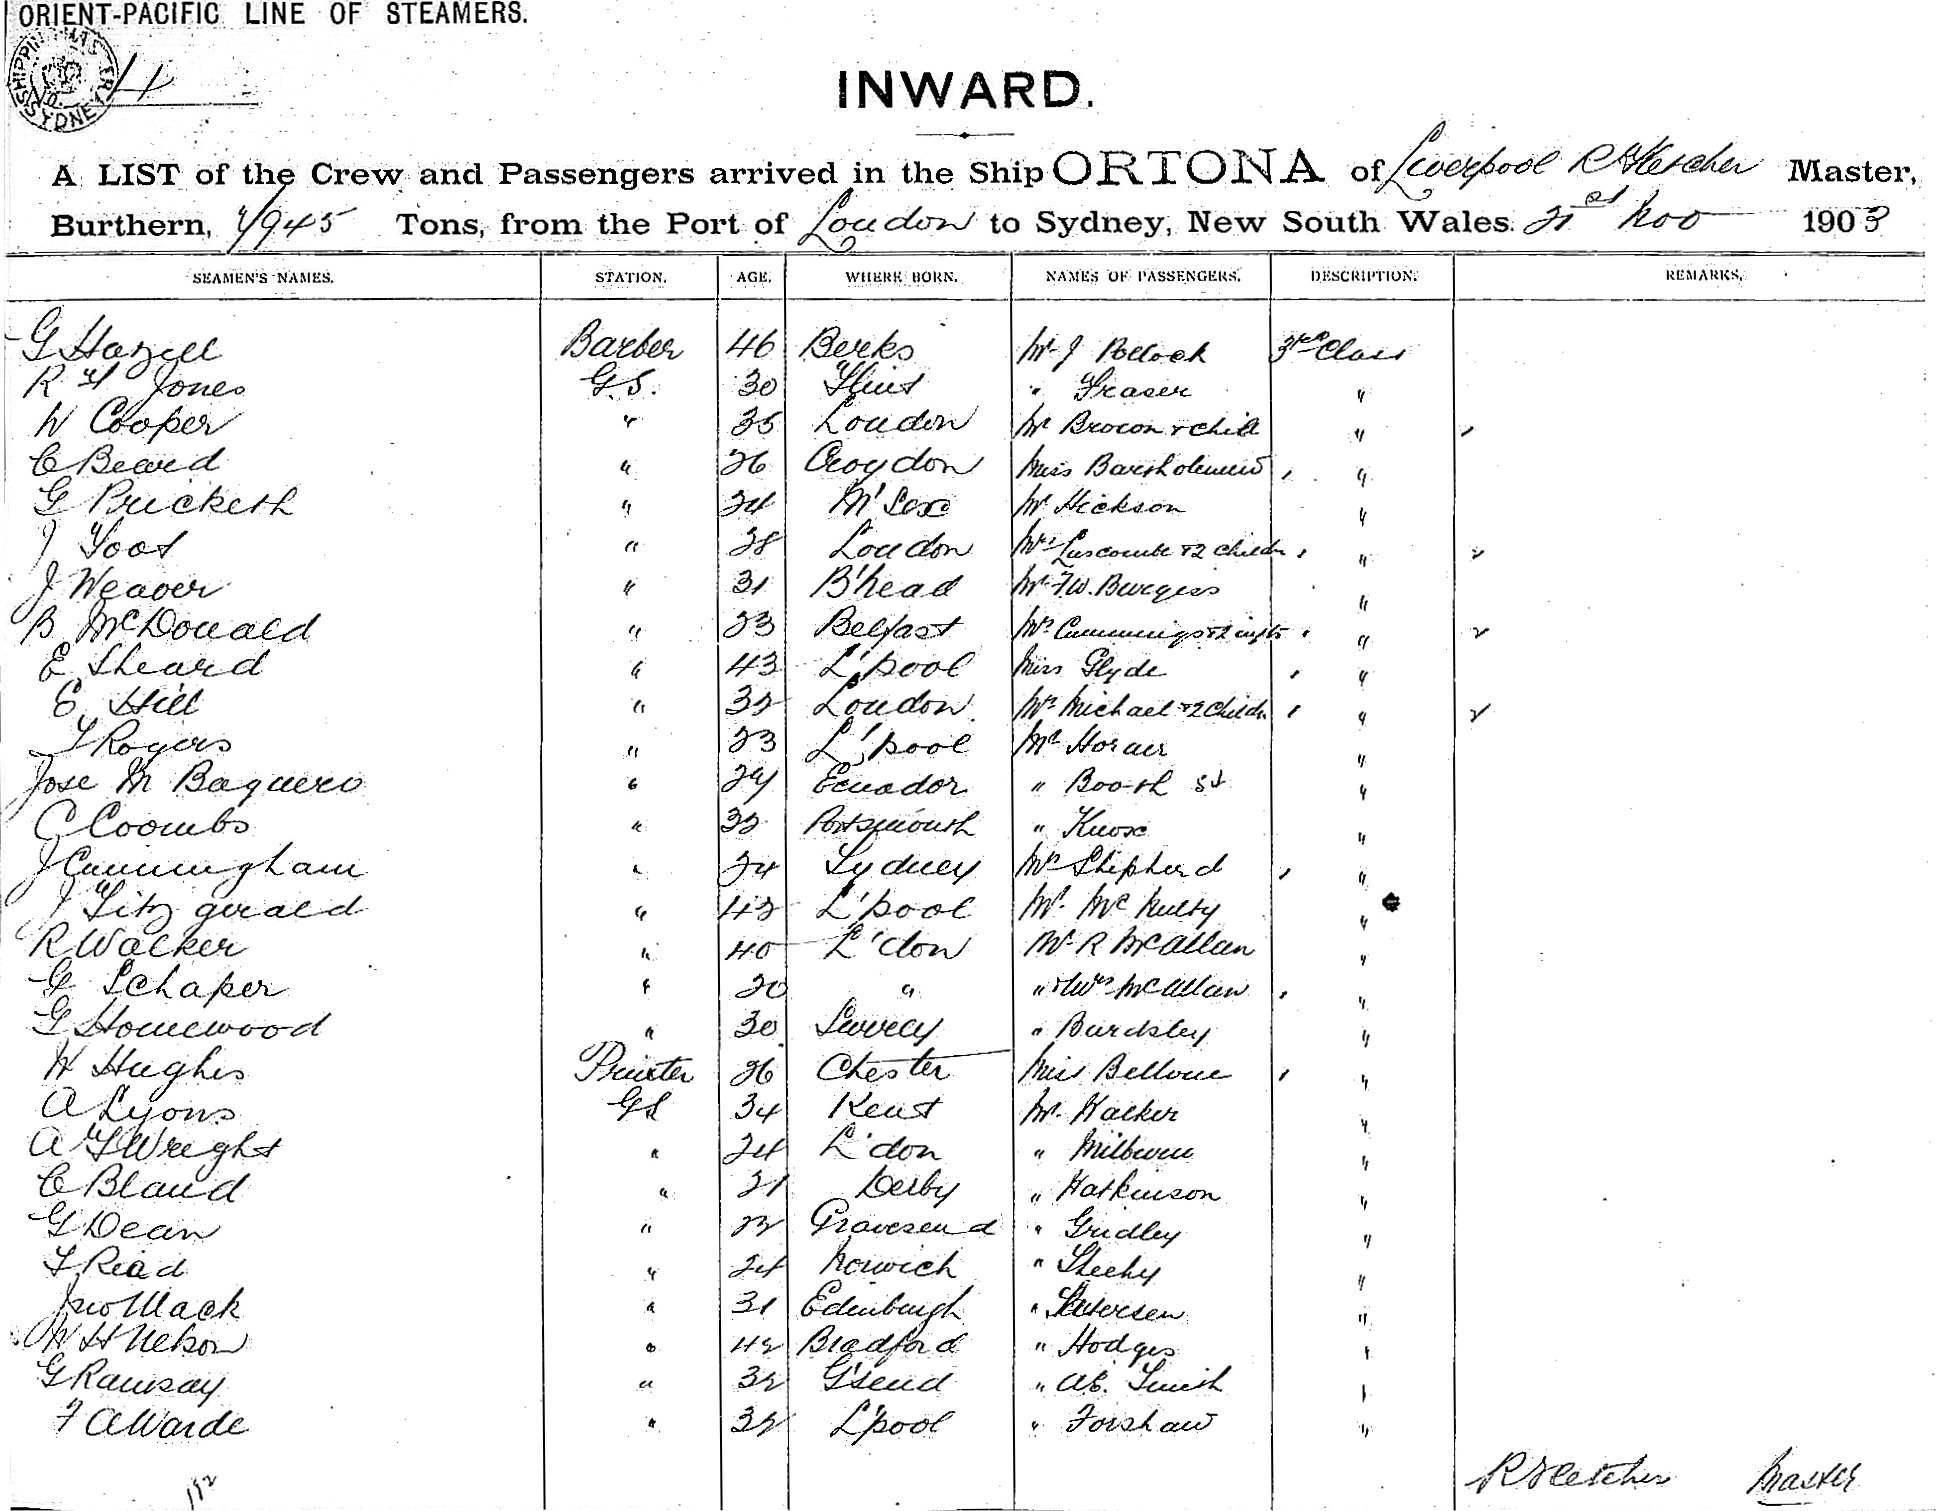 ORIENT-PACIFIC LINE OF STEAMERS.
SYDNEY
INWARD.
A LIST of the Crew and Passengers arrived in the Ship ORTONA of Liverpool R Fletcher Master,
Burthern, 7/945 Tons, from the Port of London to Sydney, New South Wales. 21st Nov 1903
SEAMEN'S NAMES. STATION. AGE. WHERE BORN. NAMES OF PASSENGERS. DESCRIPTION. REMARKS.
G Hazell Barber 46 Berks Mr J Pollock 3rd Class
R H Jones G.S. 30 Flint " Fraser "
W Cooper " 35 London Brown & Child "
C Beard " 26 Croydon Miss Bartholomew "
G Pricketh " 24 M'sex Mr Hickson "
J Foot " 28 London Mrs Luscombe & 2 Childn "
J Weaver " 31 B'head Mr F.W. Burgess "
B McDonald " 23 Belfast Mrs Cummings & 2 infts "
E Sheard " 43 L'pool Miss Glyde "
E Hill " 32 London Mrs Michael & 2 Childn "
F Rogers " 23 L'pool Mr Horan "
Jose M Baquero " 29 Ecuador " Booth "
C Coombs " 32 Portsmouth " Knox "
J Cunningham " 24 Sydney Mrs Shepherd "
J Fitzgerald " 42 L'pool Mr. McNulty "
R Walker " 40 L'don Mr R McAllan "
G Schaper " 20 " " & Mrs McAllan "
G Homewood " 30 Surrey " Bardsley "
H Hughes Printer 26 Chester Miss Bellove "
A Lyons GS 34 Kent Mr. Walker "
A F Wright " 24 L'don " Milburn "
C Bland " 21 Derby " Watkinson "
G Dean " 22 Gravesend " Gridley "
F Read " 24 Norwich " Sheehy "
Jno Mack " 31 Edinburgh " Petersen "
W H Nelson " 42 Bradford " Hodges "
G Ramsay " 32 G'send " Ab. Smith "
F A Warde " 32 L'pool " Forshaw "
R Fletcher Master
182